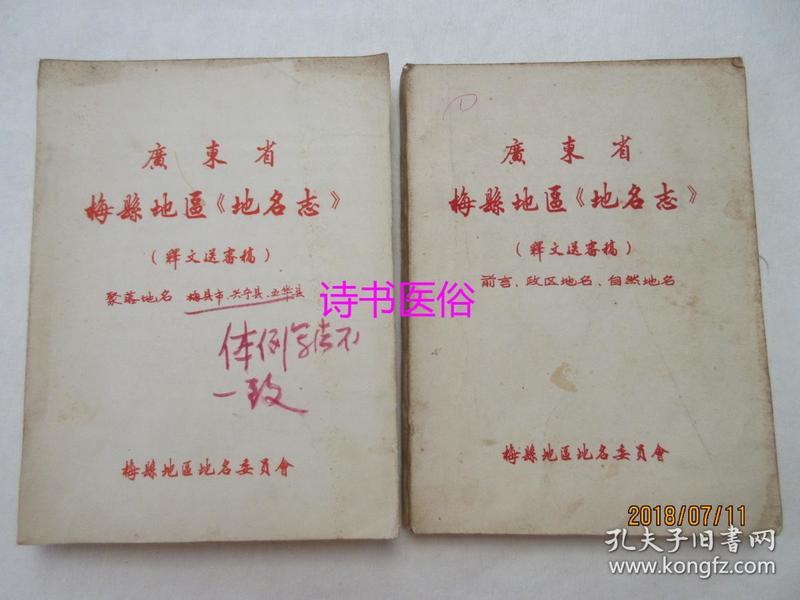 廣東省
梅縣地區《地名志》
(釋文送審稿)
聚落地名 梅县市、兴宁县、五华县
体例写法不
一致
梅縣地區地名委員會
廣東省
梅縣地區《地名志》
(釋文送審稿)
前言、政区地名、自然地名
梅縣地區地名委員會
诗书医俗
2018/07/11
孔夫子旧书网
www.kongfz.com